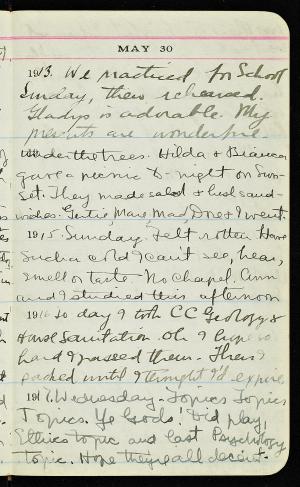 MAY 30
1913. We practiced for School
Sunday, then rehearsed.
Gladys is adorable. My
presents are wonderful.
Under the trees. Hilda & Bianca
gave a picnic to-night on Sun-
set. They made salad & sand-
wiches. Gertie, Marj, Mad, Dot & I went.
1915. Sunday. Felt rotten. Have
such a cold I can't see, hear,
smell or taste. No chapel. Ann
and I studied this afternoon
1916 To day I took CC Geology &
Hand Sanitation. Oh I hope so
hard I passed them. Then I
packed until I thought I'd expire
1917. Wednesday - Topics Topics
Topics. Ye Gods! Did play,
Ethics topic and last Psychology
topic. Hope they're all decent -